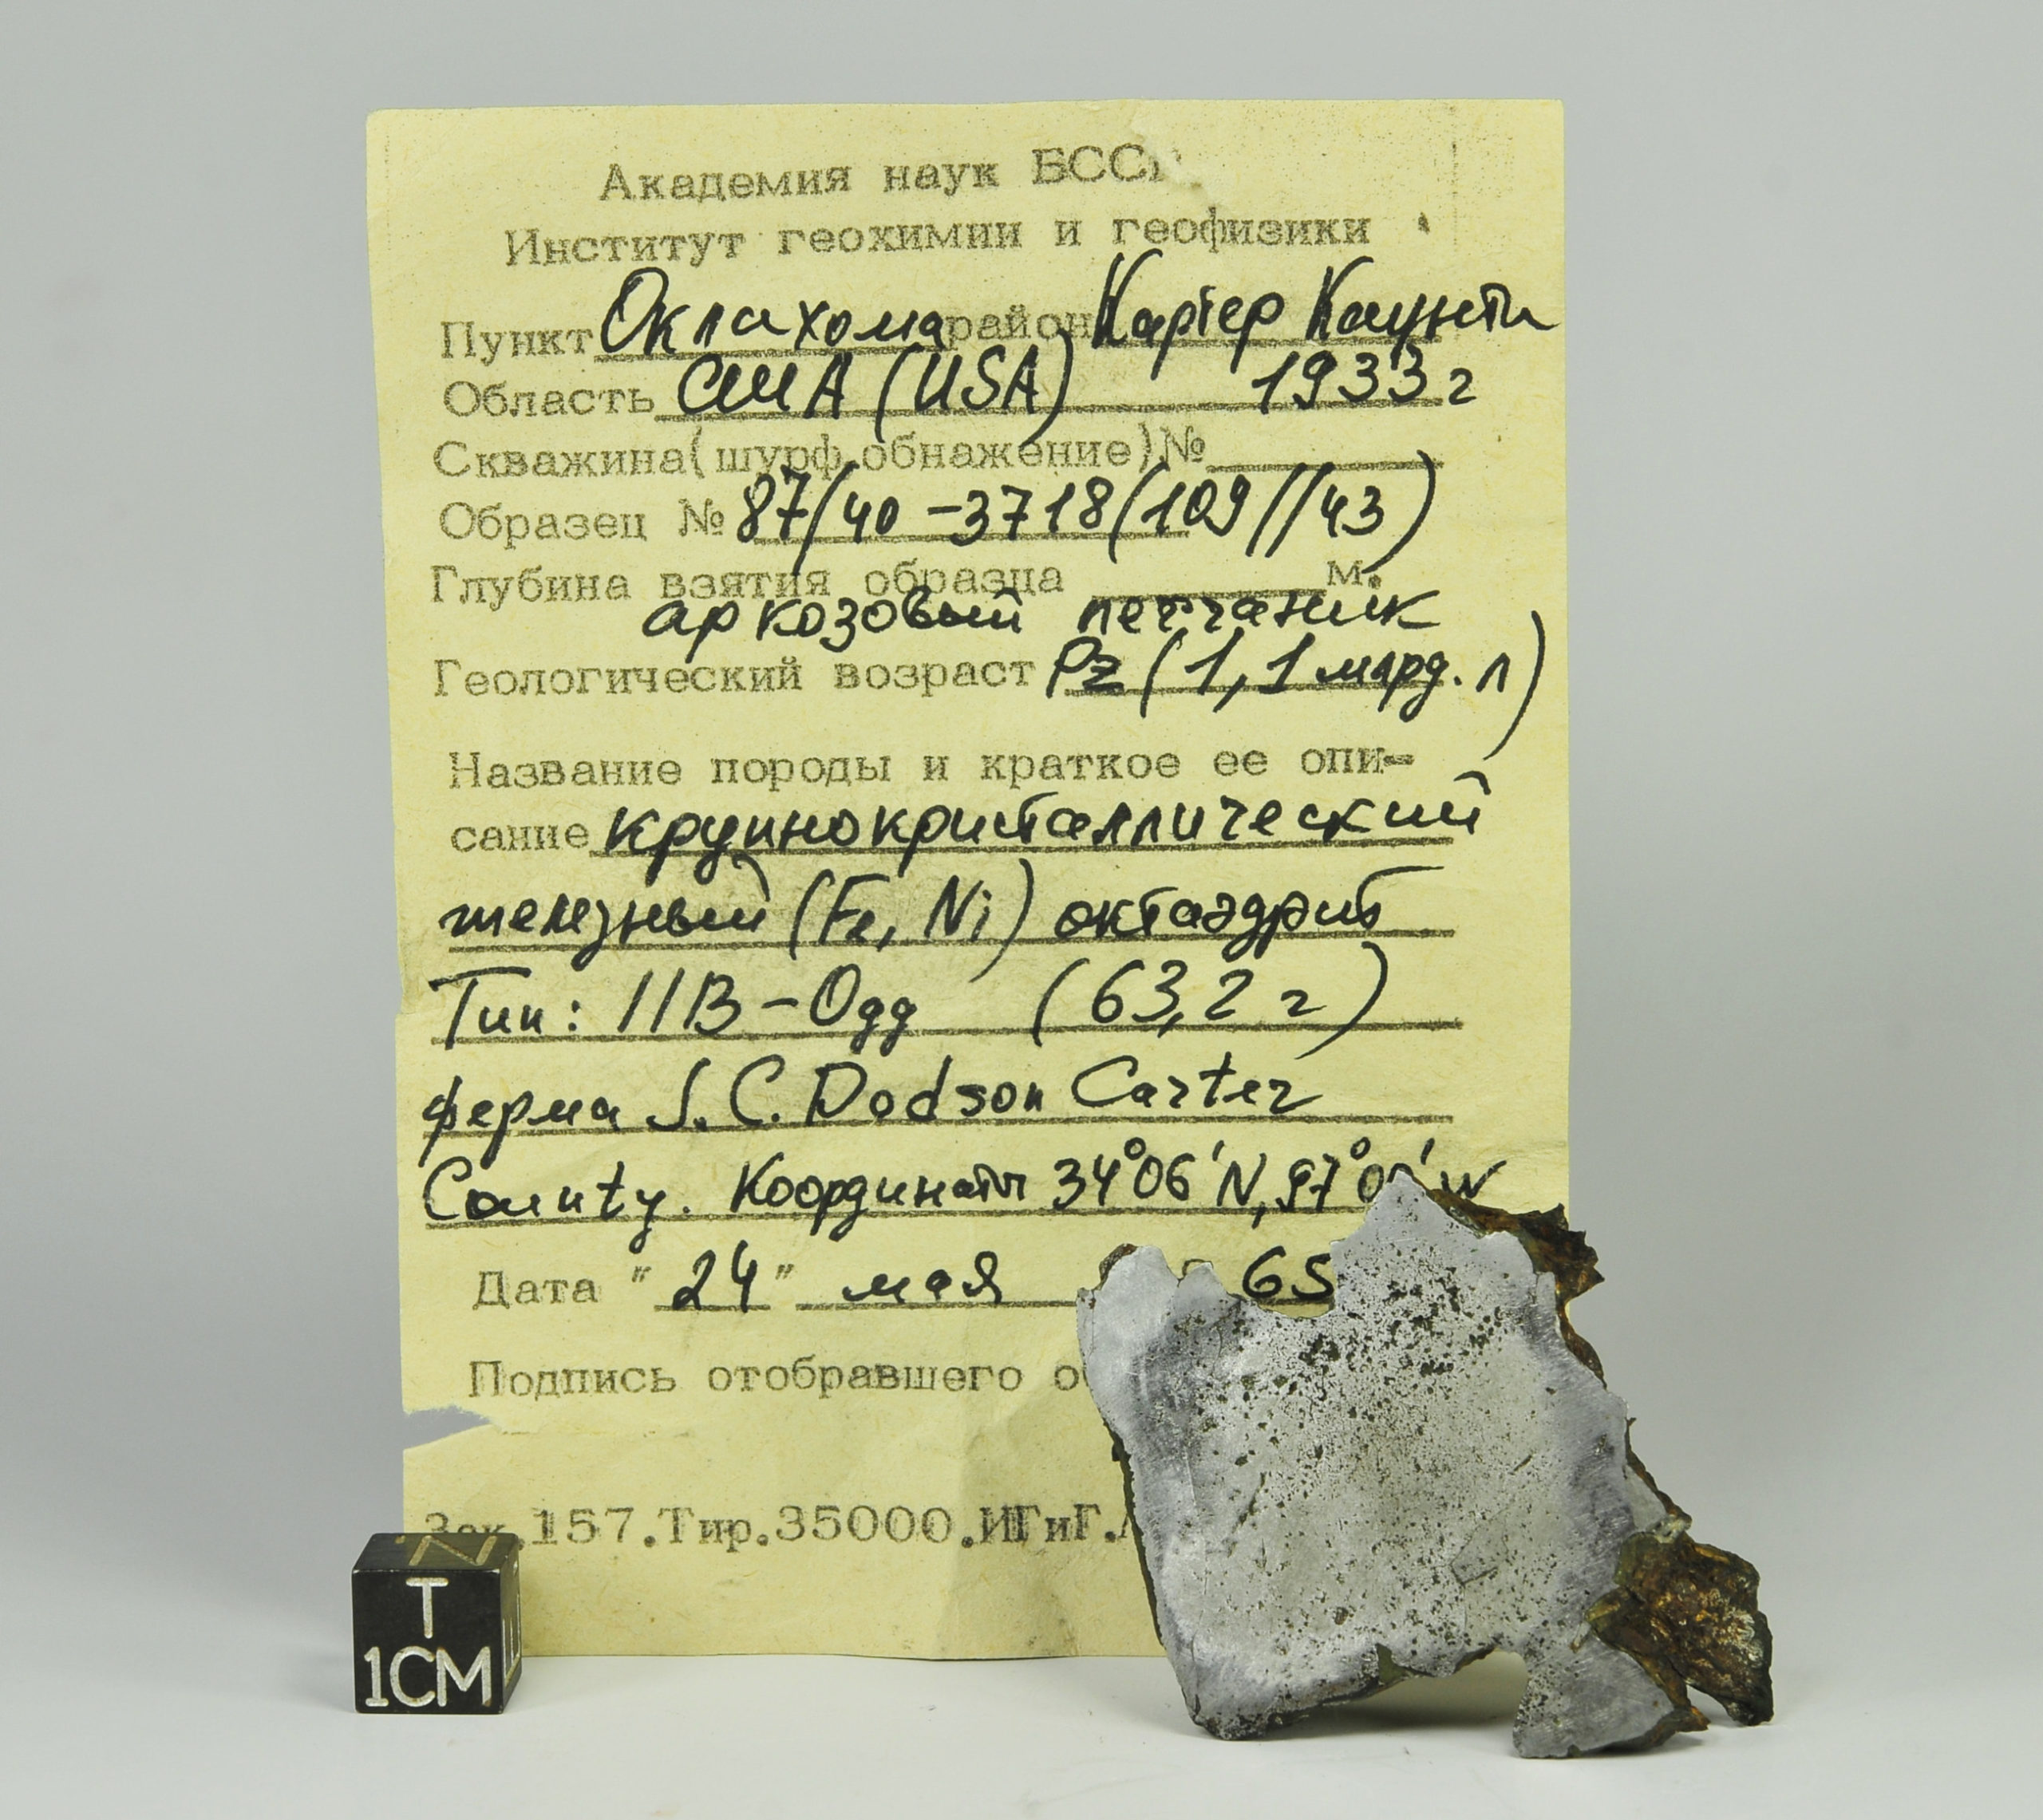 Академия наук БССР
Институт геохимии и геофизики
Пункт Оклахома район Картер Каунти
Область США (USA) 1933 г
Скважина(шурф,обнажение)№
Образец № 87/40-3718(109//43)
Глубина взятия образца м.
аркозовый песчаник
Геологический возраст Pz (1,1 млрд. л)
Название породы и краткое ее опи-
сание крупнокристаллический
железный (Fe, Ni) октаэдрит
Тип: IIB-Ogg (63,2 г)
ферма S. C. Dodson Carter
County. Координаты 34°06'N, 97° 'W
Дата "24" мая 65
Подпись отобравшего
Зак.157.Тир.35000.ИГиГ.
T
1CM
N